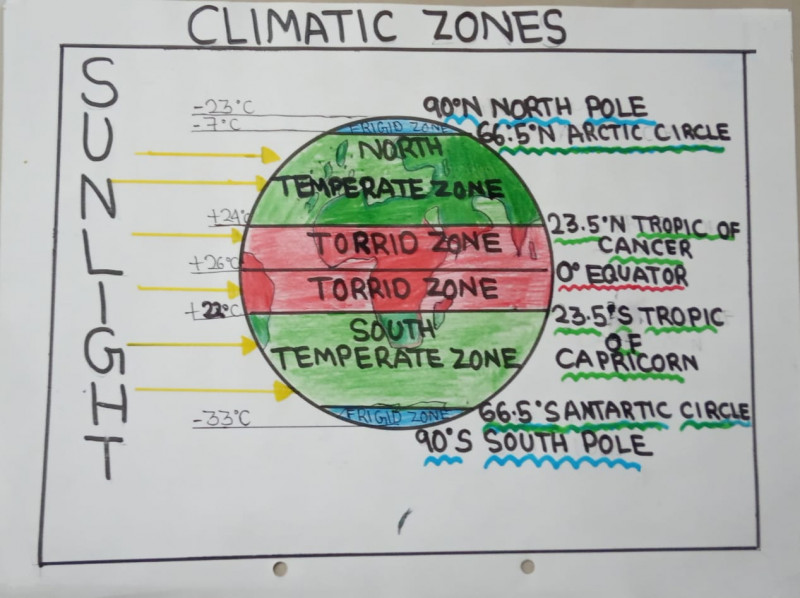 CLIMATIC ZONES
SUNLIGHT
-23°C
-7°C
+24°C
+26°C
+22°C
-33°C
FRIGID ZONE
NORTH
TEMPERATE ZONE
TORRID ZONE
TORRID ZONE
SOUTH
TEMPERATE ZONE
FRIGID ZONE
90°N NORTH POLE
66.5°N ARCTIC CIRCLE
23.5°N TROPIC OF
CANCER
0° EQUATOR
23.5°S TROPIC
OF
CAPRICORN
66.5°S ANTARTIC CIRCLE
90°S SOUTH POLE